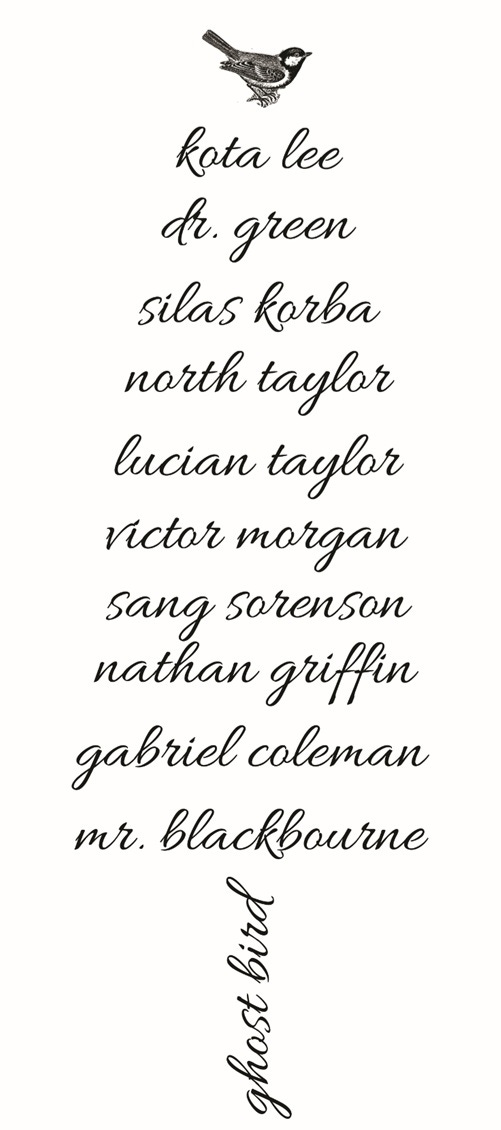 kota lee
dr. green
silas korba
north taylor
lucian taylor
victor morgan
sang sorenson
nathan griffin
gabriel coleman
mr. blackbourne
ghost bird